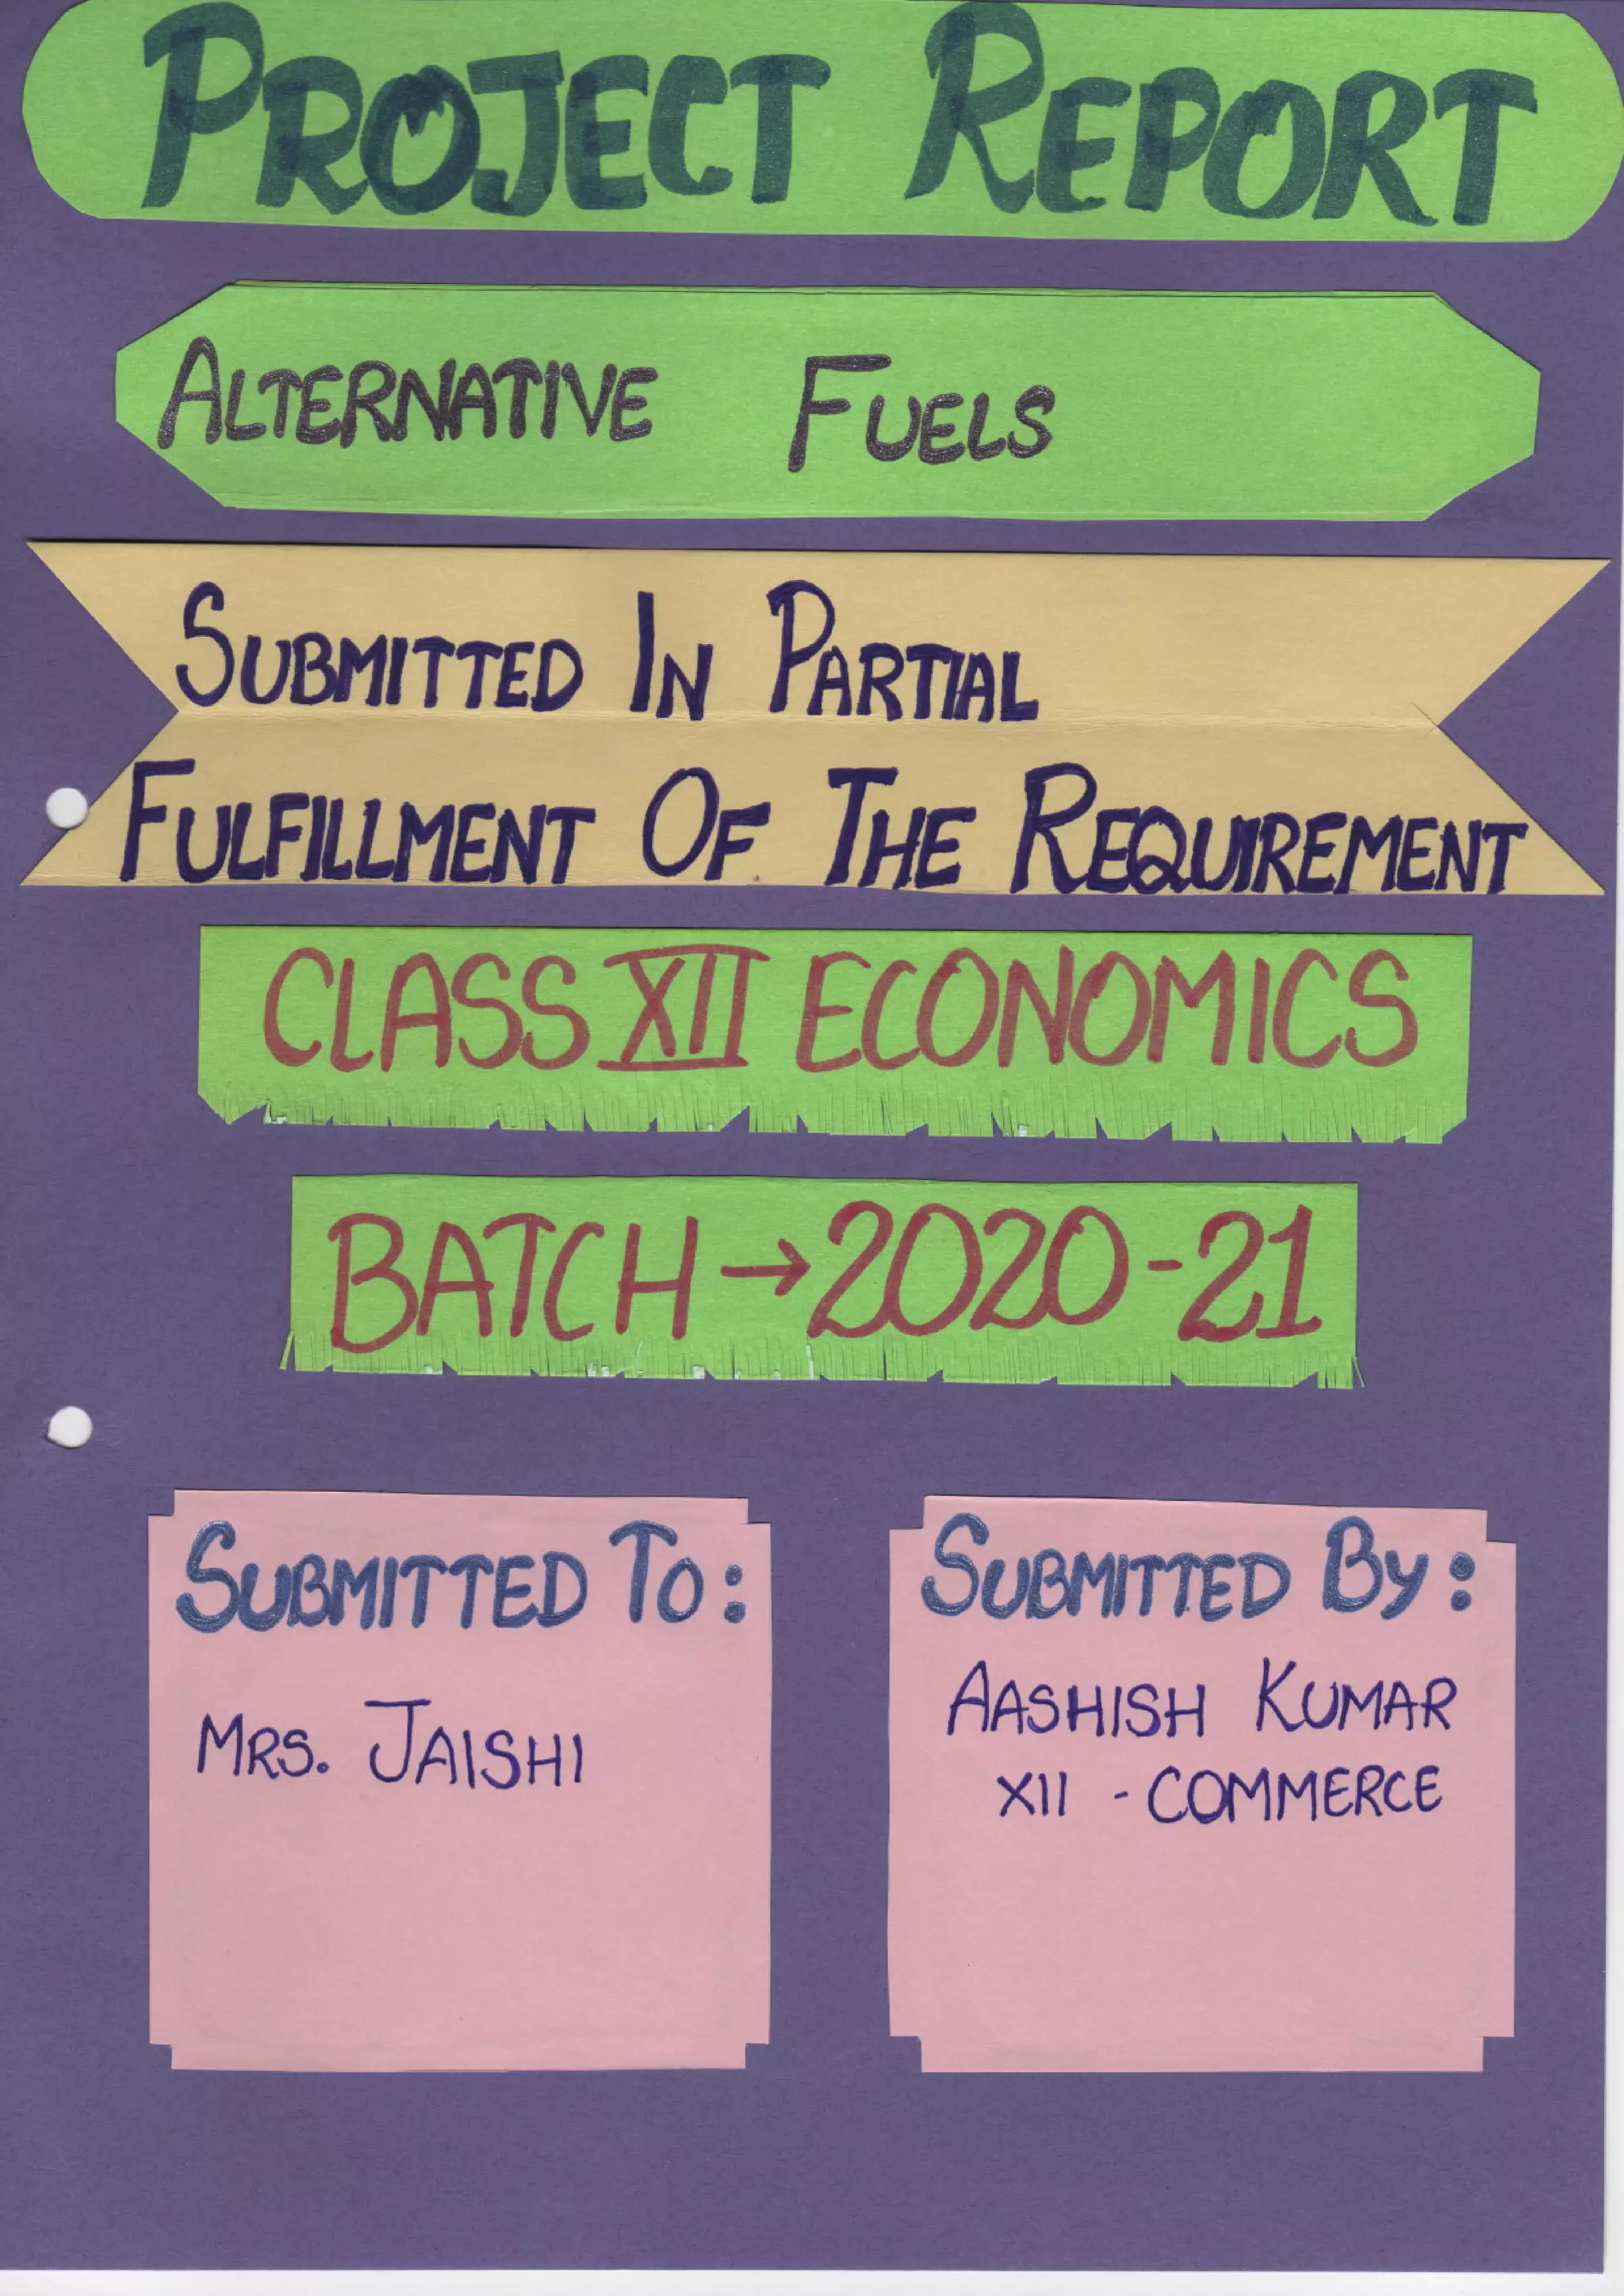 PROJECT REPORT
ALTERNATIVE FUELS
SUBMITTED IN PARTIAL
FULFILLMENT OF THE REQUIREMENT
CLASS XII ECONOMICS
BATCH→2020-21
SUBMITTED TO:
MRS. JAISHI
SUBMITTED BY:
AASHISH KUMAR
XII - COMMERCE